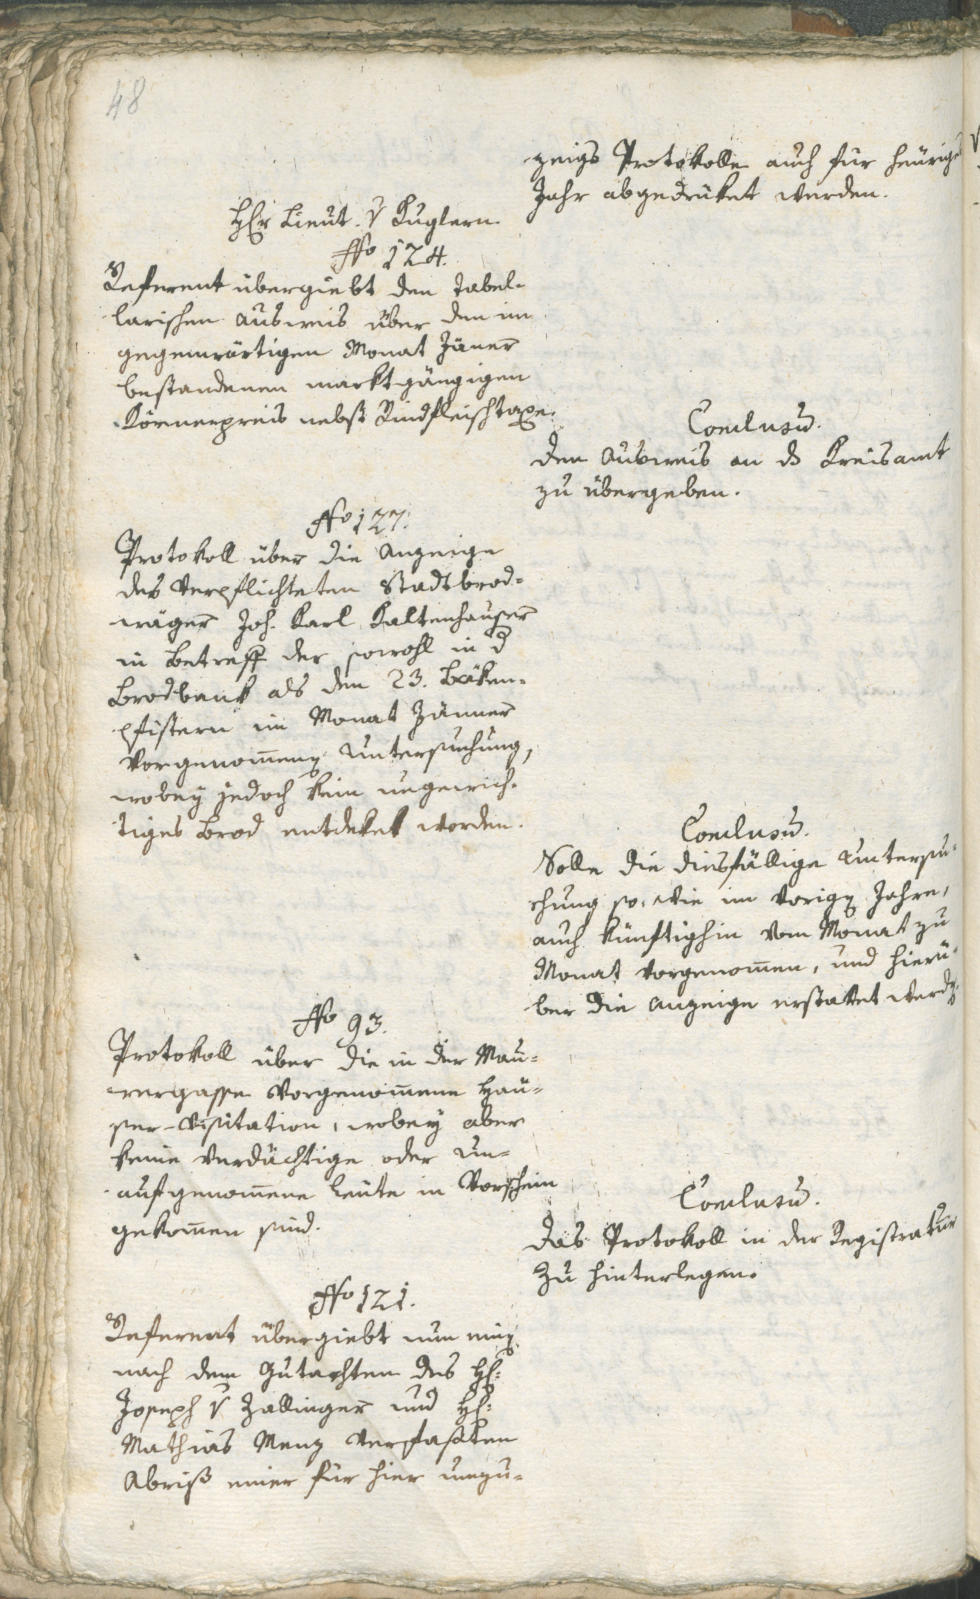 48
zeigs Protokolle auch für heurige
Jahr abgedruket werden.
H֞er Lieut. v Kuglern.
No 124.
Referent übergiebt den tabel-
larischen Ausweis über den im
gegenwärtigen Monat Jäner
bestandenen marktgängigen
Körnerpreis nebst Rindfleischtaxe.
Conclusū.
den Ausweis an ds Kreisamt
zu übergeben.
No 127.
Protokoll über die Anzeige
des verpflichteten Stadtbrod-
wäger Joh. Karl Kaltenhauser
in Betreff der sowohl in d
Brodbank als den 23. Bäken-
pfistern im Monat Jänner
vorgenom̄eng Untersuchung,
wobey jedoch kein ungewich-
tiges Brod entdeket worden.
Conclusū.
Solle die diesfällige Untersu-
chung so, wie im vorigg Jahre,
auch künftighin vom Monat zu
Monat vorgenom̄en, und hierü-
ber die Anzeige erstattet werdg.
No 93.
Protokoll über die in der Mau-
rergasse vorgenom̄ene Häu-
ser-Visitation, wobey aber
keine verdächtige oder un-
aufgenom̄ene Leute in Vorschein
gekom̄en sind.
Conclusū.
Das Protokoll in der Registratur
zu hinterlegen.
No 121.
Referent übergiebt nun eing
nach dem Gutachten des H:
Joseph v Zallinger und H:
Mathias Menz verfaßten
Abriß einer für hier